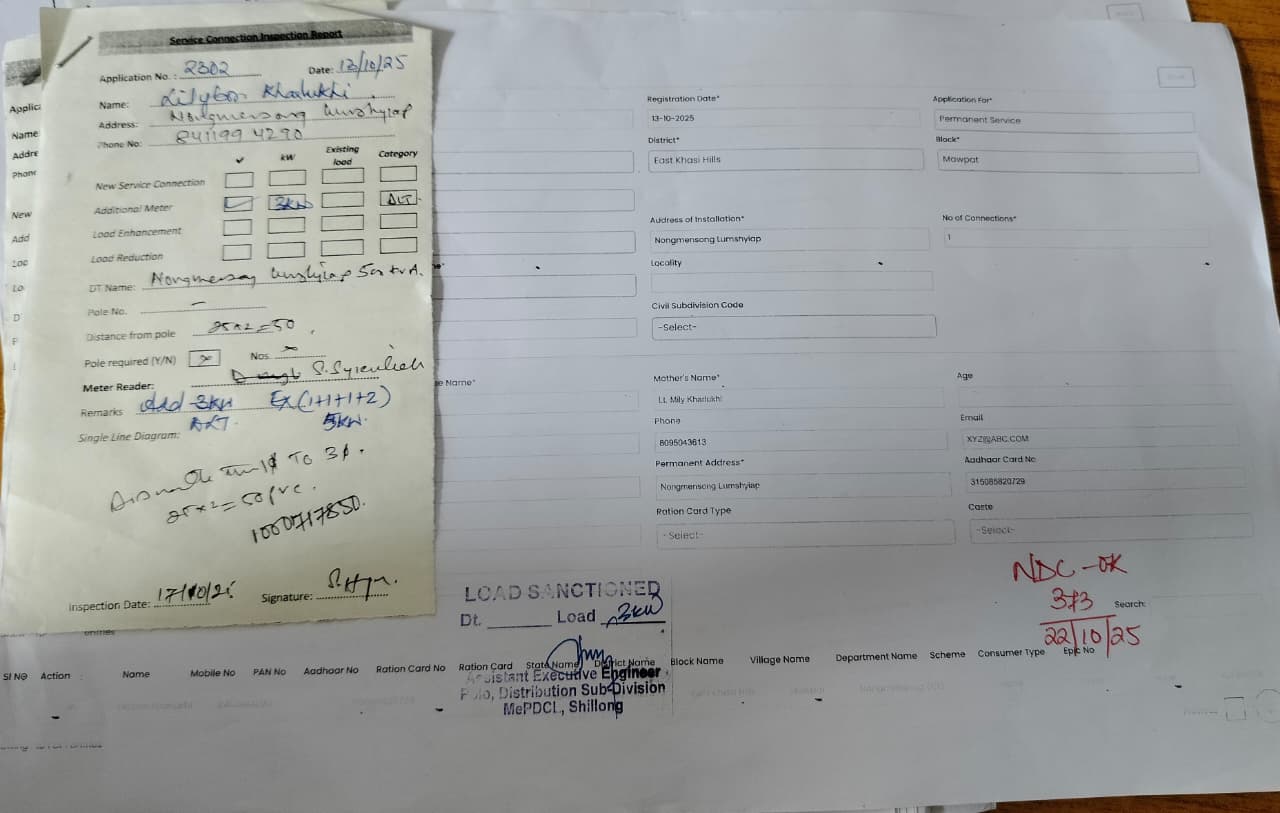 Service Connection Inspection Report
Application No. : 2302 Date: 13/10/25
Name:
Address: Nongmensong Lumshyiap
Phone No: 841199 4290
✓ kW Existing load Category
New Service Connection
Additional Meter ✓ 3KW DLT
Load Enhancement
Load Reduction
DT Name: Nongmensong Lumshyiap
Pole No. –
Distance from pole 25x2=50
Pole required (Y/N) Nos
Meter Reader:
Remarks Add 3KW Ex(1+1+1+2)
DLT. 5KW.
Single Line Diagram:
1Φ To 3Φ.
25x2=50 PVC.
1000717850.
Inspection Date: Signature:
Registration Date*
13-10-2025
Application For*
Permanent Service
District*
East Khasi Hills
Block*
Mawpat
Address of Installation*
Nongmensong Lumshyiap
No of Connections*
1
Locality
Civil Subdivision Code
-Select-
Mother's Name*
Lt. Mily Kharlukhi
Age
Phone
8095043613
Email
XYZ@ABC.COM
Permanent Address*
Nongmensong Lumshyiap
Aadhaar Card No
315085820729
Ration Card Type
-Select-
Caste
-Select-
LOAD SANCTIONED
Dt. Load 3KW
Assistant Executive Engineer
Polo, Distribution Sub-Division
MePDCL, Shillong
NDC-OK
373
22/10/25
Search:
Sl No Action Name Mobile No PAN No Aadhaar No Ration Card No Ration Card State Name District Name Block Name Village Name Department Name Scheme Consumer Type Epic No